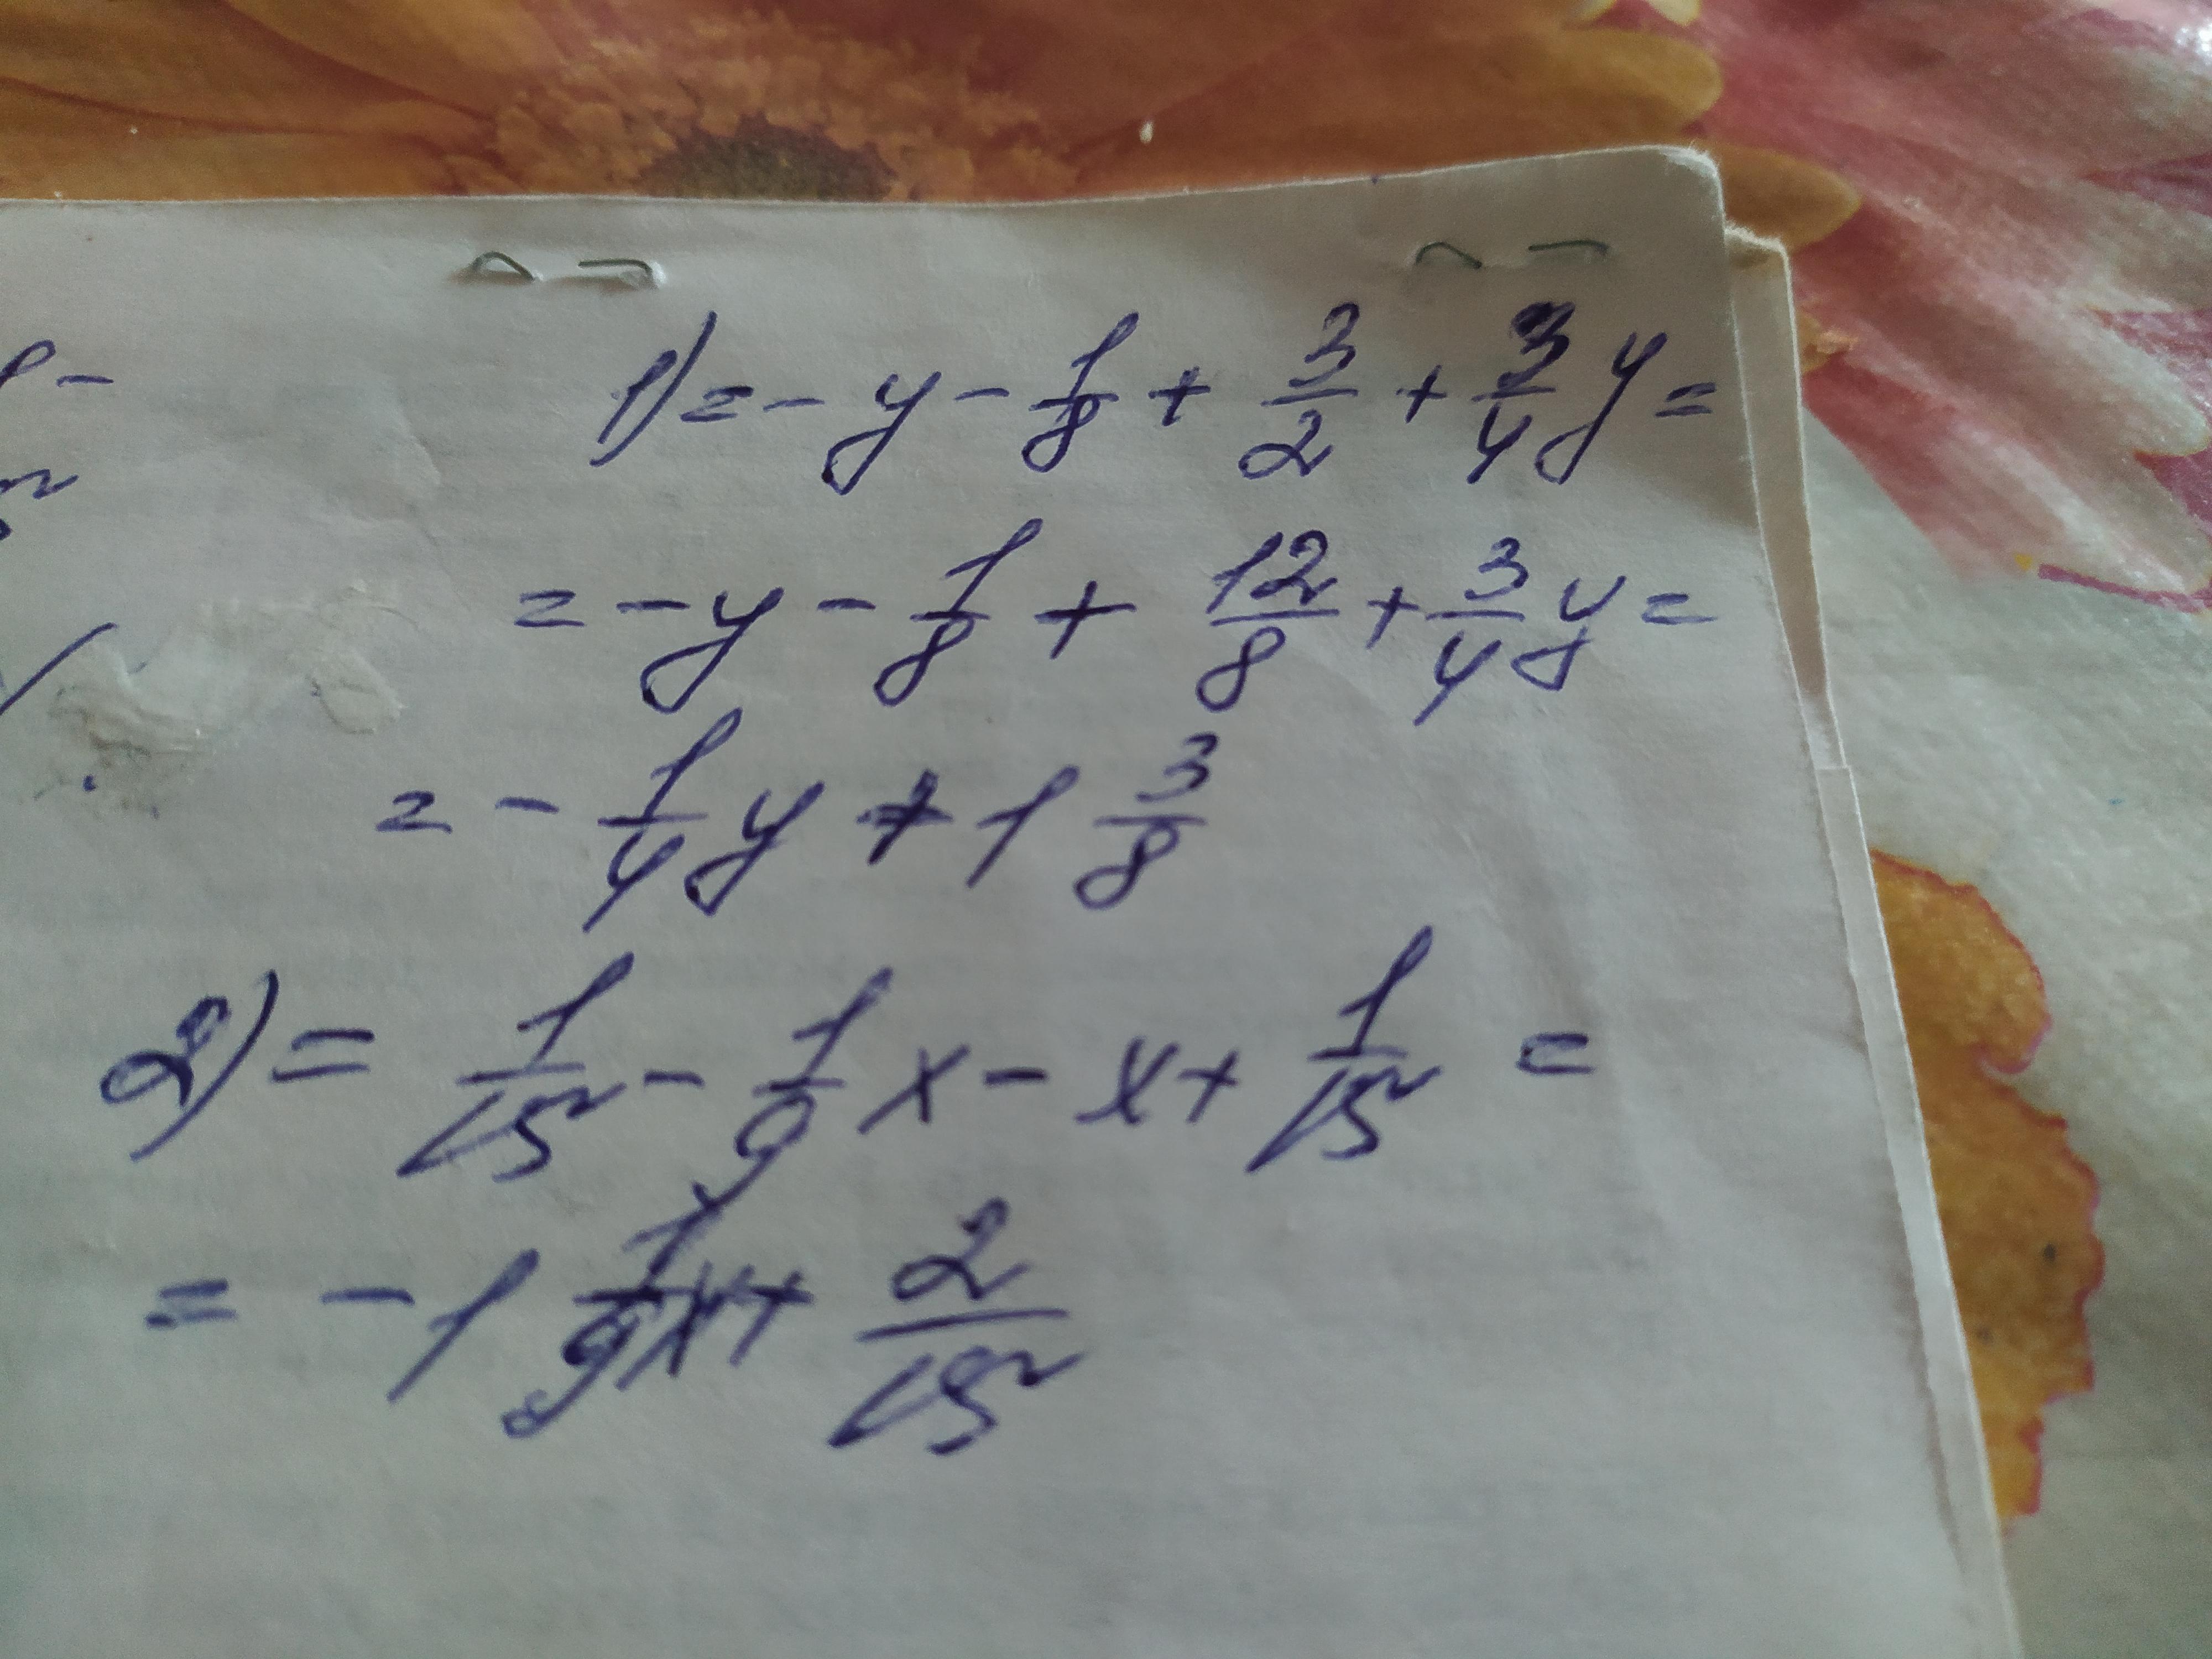 1) = - y - 1/8 + 3/2 + 3/4 y =
= - y - 1/8 + 12/8 + 3/4 y =
= - 1/4 y + 1 3/8
2) = 1/15 - 1/9 x - x + 1/15 =
= - 1 1/9 x + 2/15